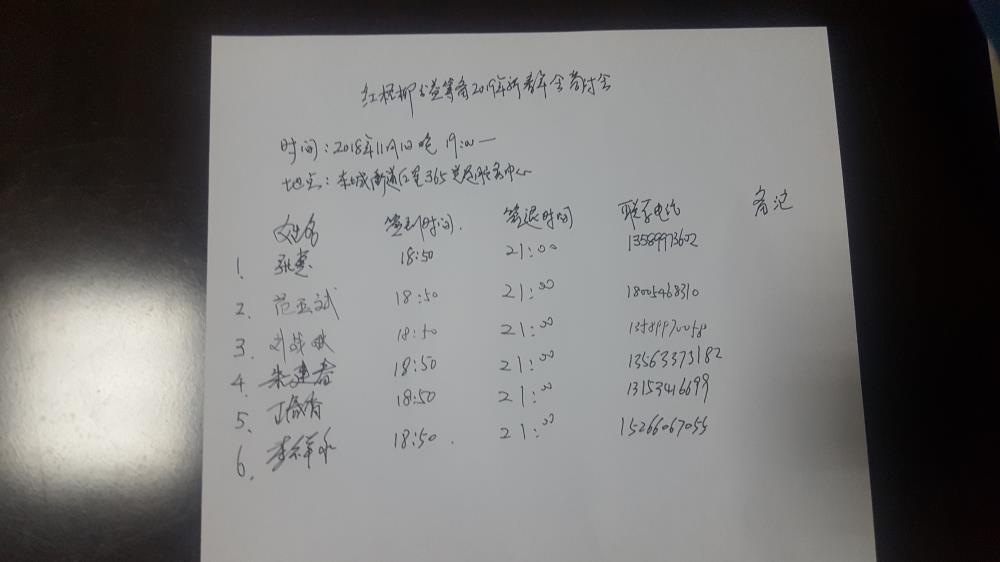 红柽柳公益筹备2019年新春年会商讨会
时间:2018年11月1日晚 19:00—
地点:东城街道红星365党建服务中心
姓名 签到时间. 签退时间 联系电话 备注
1. 张莹 18:50 21:00 13589973602
2. 范玉斌 18:50 21:00 18005468310
3. 刘战斌 18:50 21:00 13589970058
4. 朱建春 18:50 21:00 13563373182
5. 丁俊香 18:50 21:00 13153416699
6. 李祥永 18:50. 21:00 15266067055